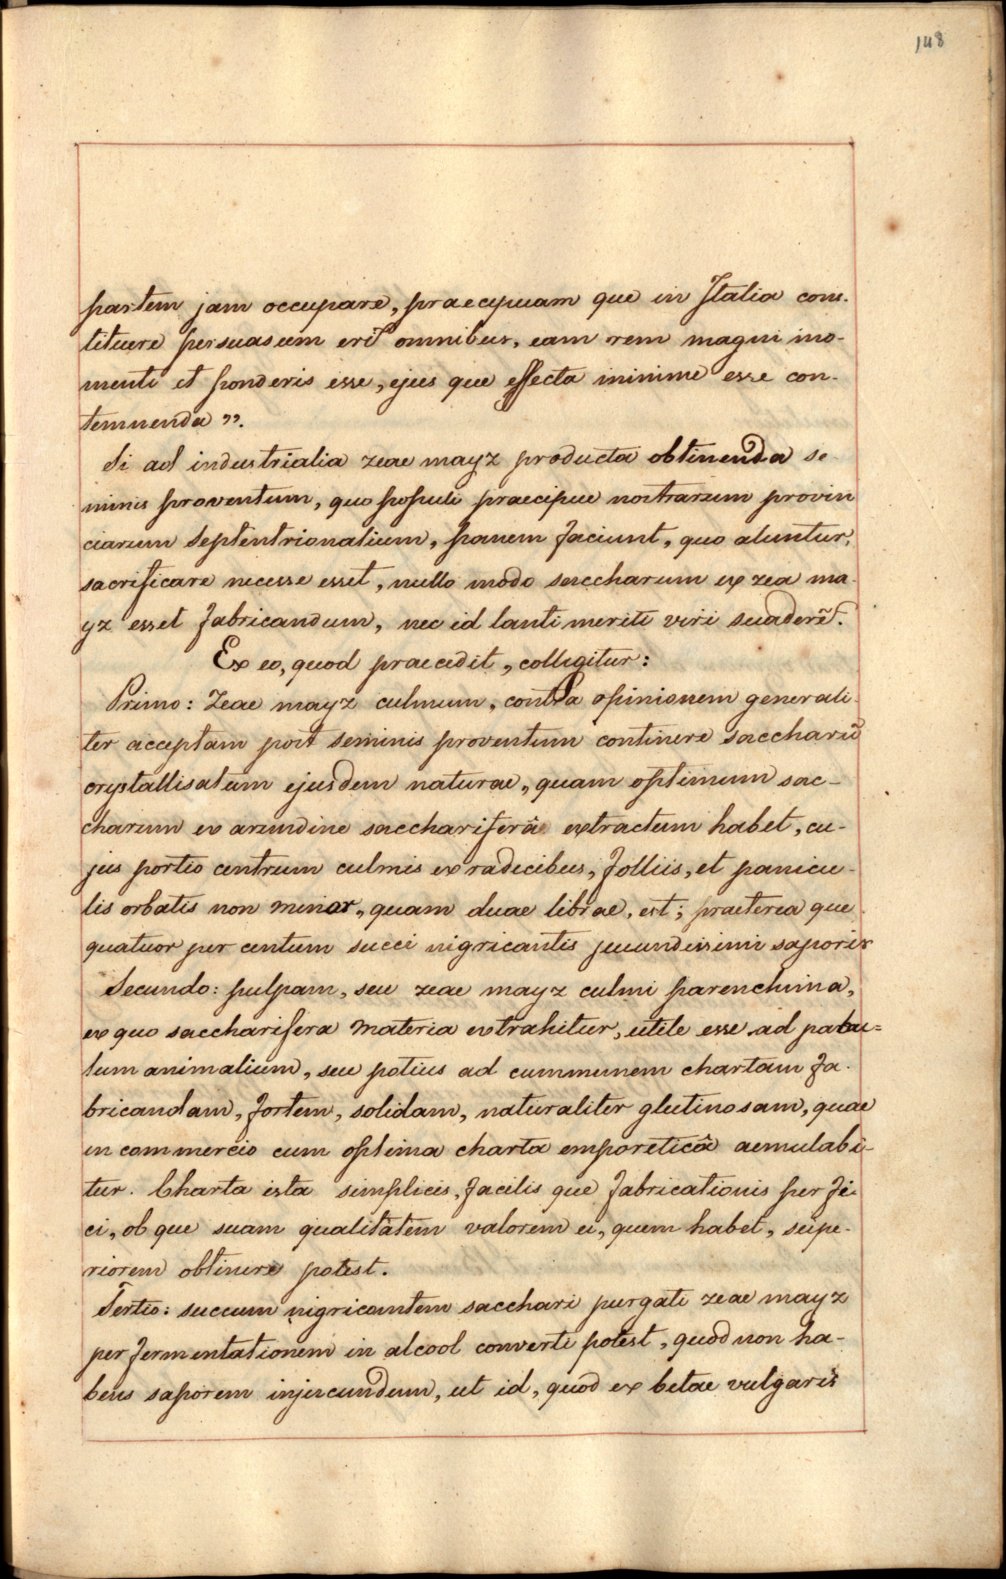 148
partem jam occupare, praecipuam que in Italia cons-
tituere persuasum erit omnibus, eam rem magni mo-
menti et ponderis esse, ejus que effecta minime esse con-
temnenda ”.
Si ad industrialia zeae mayz producta obtinenda se-
minis proventum, quo populi praecipue nostrarum provin
ciarum septentrionalium, panem faciunt, quo aluntur,
sacrificare necesse esset, nullo modo saccharum ex zea ma-
yz esset fabricandum, nec id tanti meriti viri suaderẽt.
Ex eo, quod praecedit, colligitur:
Primo: Zeae mayz culmum, contra opinionem generali-
ter acceptam post seminis proventum continere saccharũ
crystallisatum ejusdem naturae, quam optimum sac-
charum ex arundine sacchariferâ extractum habet, cu-
jus portio centrum culmis ex radicibus, folliis, et panicu-
lis orbatis non minor, quam duae librae, est; praeterea que
quatuor per centum succi nigricantis jucundissimi saporis
Secundo: pulpam, seu zeae mayz culmi parenchima,
ex quo saccharifera materia extrahitur, utile esse ad pabu=
lum animalium, seu potius ad cummunem chartam fa-
bricandam, fortem, solidam, naturaliter glutinosam, quae
in commercio cum optima charta emporeticâ aemulabi-
tur. Charta ista simplicis, facilis que fabricationis per fi-
ci, ob que suam qualitatem valorem ei, quem habet, supe-
riorem obtinere potest.
Tertio: succum nigricantem sacchari purgati zeae mayz
per fermentationem in alcool converti potest, quod non ha-
bens saporem injucundum, ut id, quod ex betae vulgaris